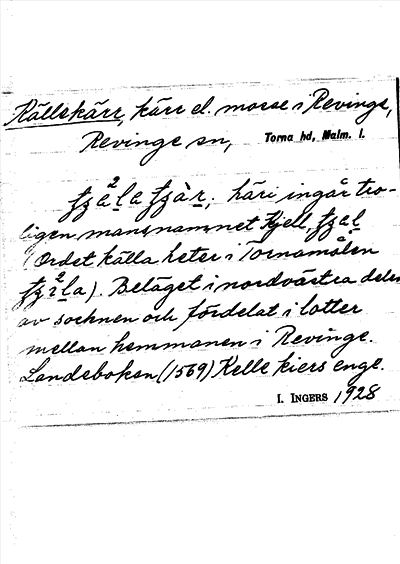 Källskärr, kärr el. mosse i Revinge,
Revinge sn, Torna hd, Malm. l.
häri ingår tro-
ligen mansnamnet Kjell,
(Ordet källa heter i Tornamålen
). Beläget i nordvästra delen
av socknen och fördelat i lotter
mellan hemmanen i Revinge.
Landeboken (1569) Kelle kiers enge.
I. INGERS 1928